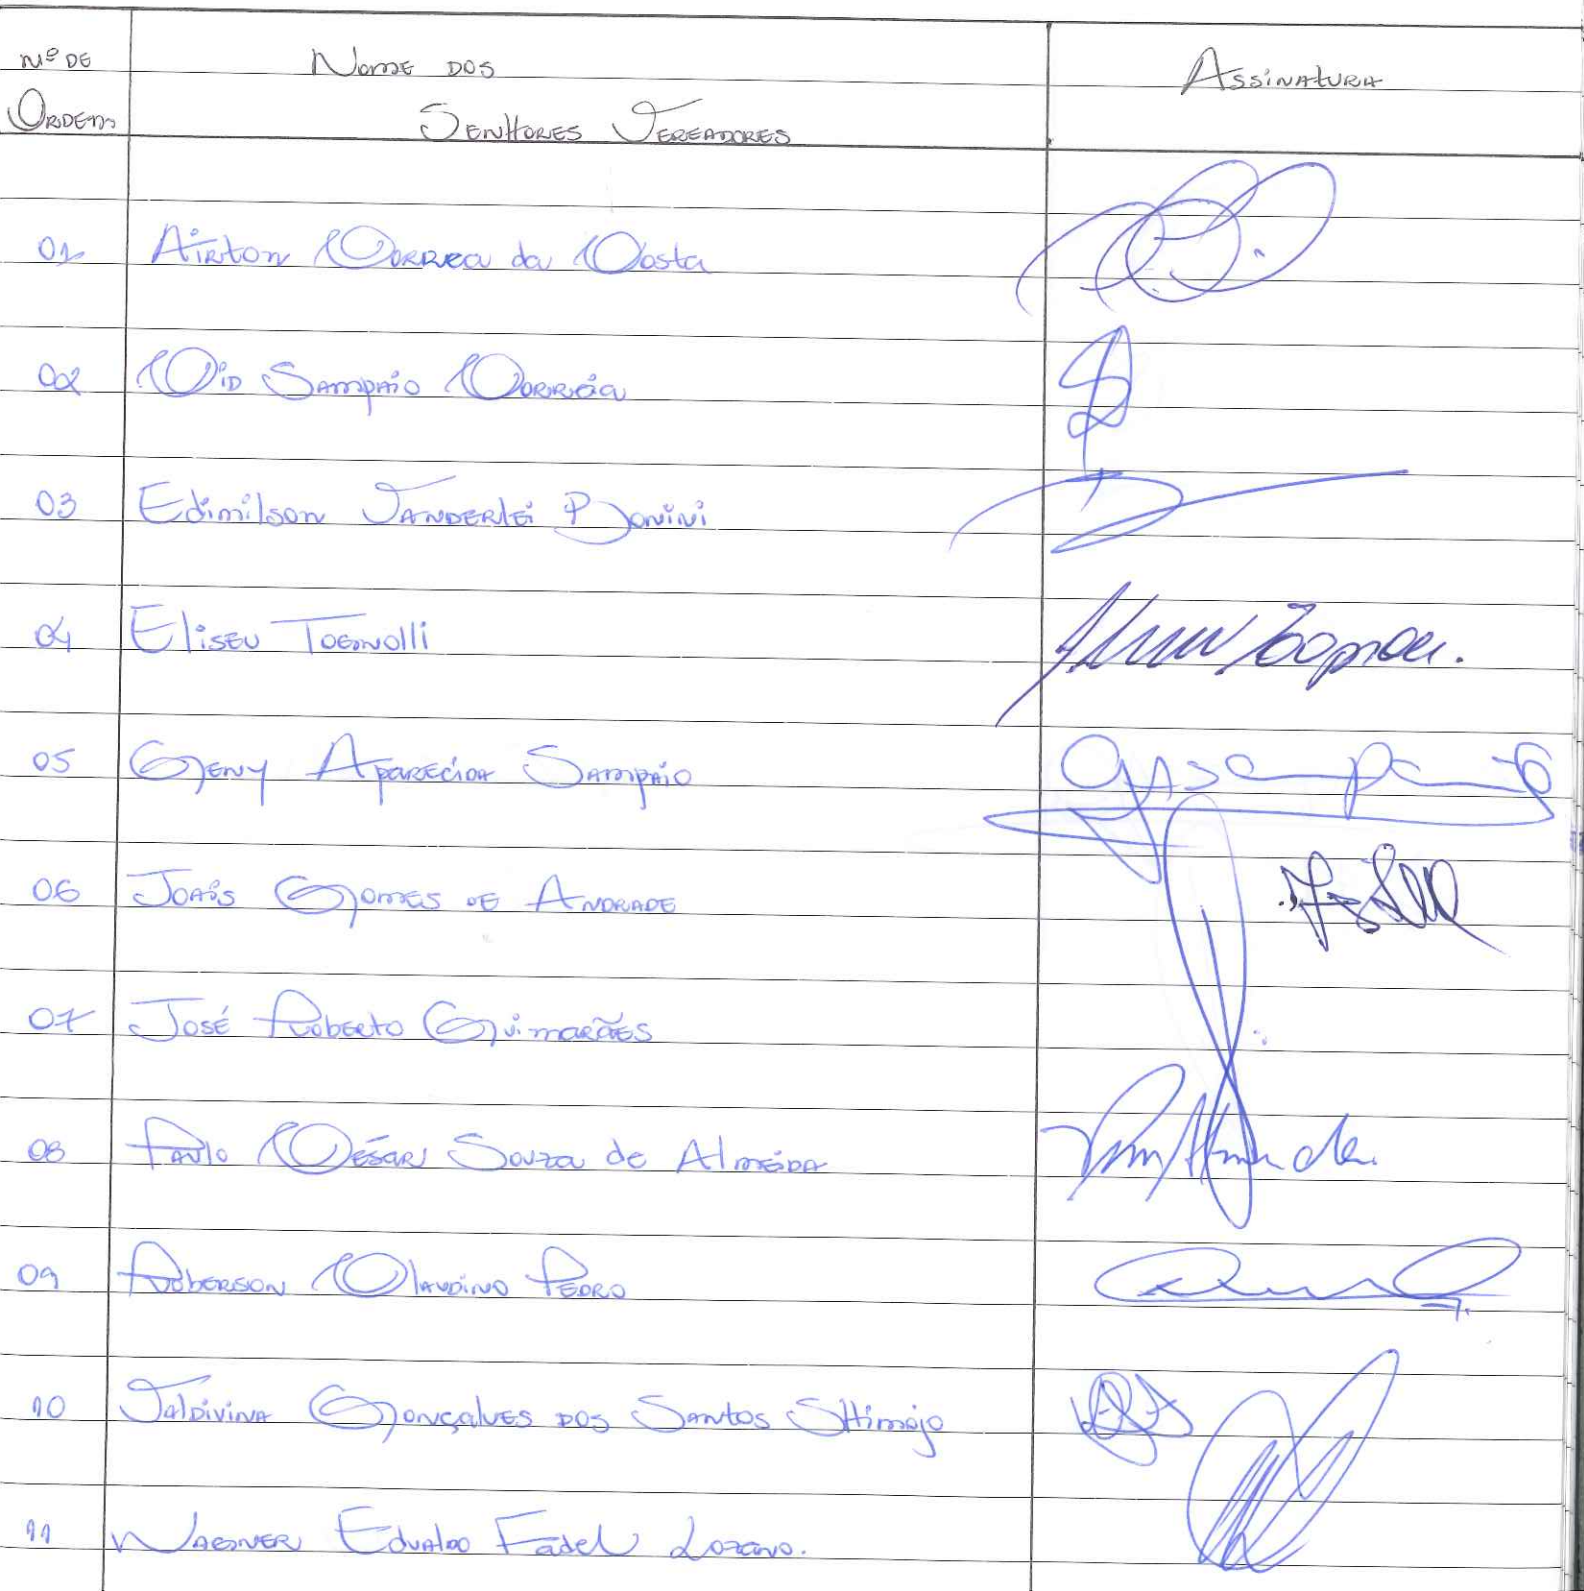 Nº DE Nome dos Assinatura
Ordem Senhores Vereadores
01 Airton Correa da Costa
02 Cid Sampaio Corrêa
03 Edimilson Vanderlei Bonini
04 Eliseu Tognolli
05 Geny Aparecida Sampaio
06 Joaõs Gomes de Andrade
07 José Roberto Guimarães
08 Paulo César Souza de Almeida
09 Roberson Claudino Pedro
10 Valdivina Gonçalves dos Santos Shimojo
11 Wagner Edvaldo Fadel Lozano.